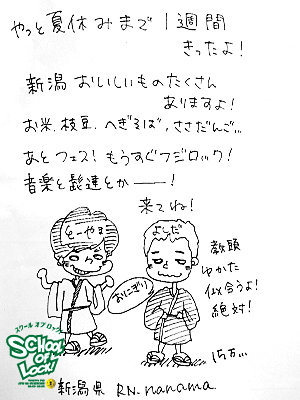 やっと夏休みまで1週間
きったよ!
新潟おいしいものたくさん
ありますよ!
お米、枝豆、へぎそば、ささだんご…
あとフェス!もうすぐフジロック!
音楽と髭達とかー!
来てね!
とーやま
よしだ
おにぎり
教頭
ゆかた
似合うよ!
絶対!
スクール オブ ロック!
SCHOOL OF LOCK!
新潟県 RN. nanama